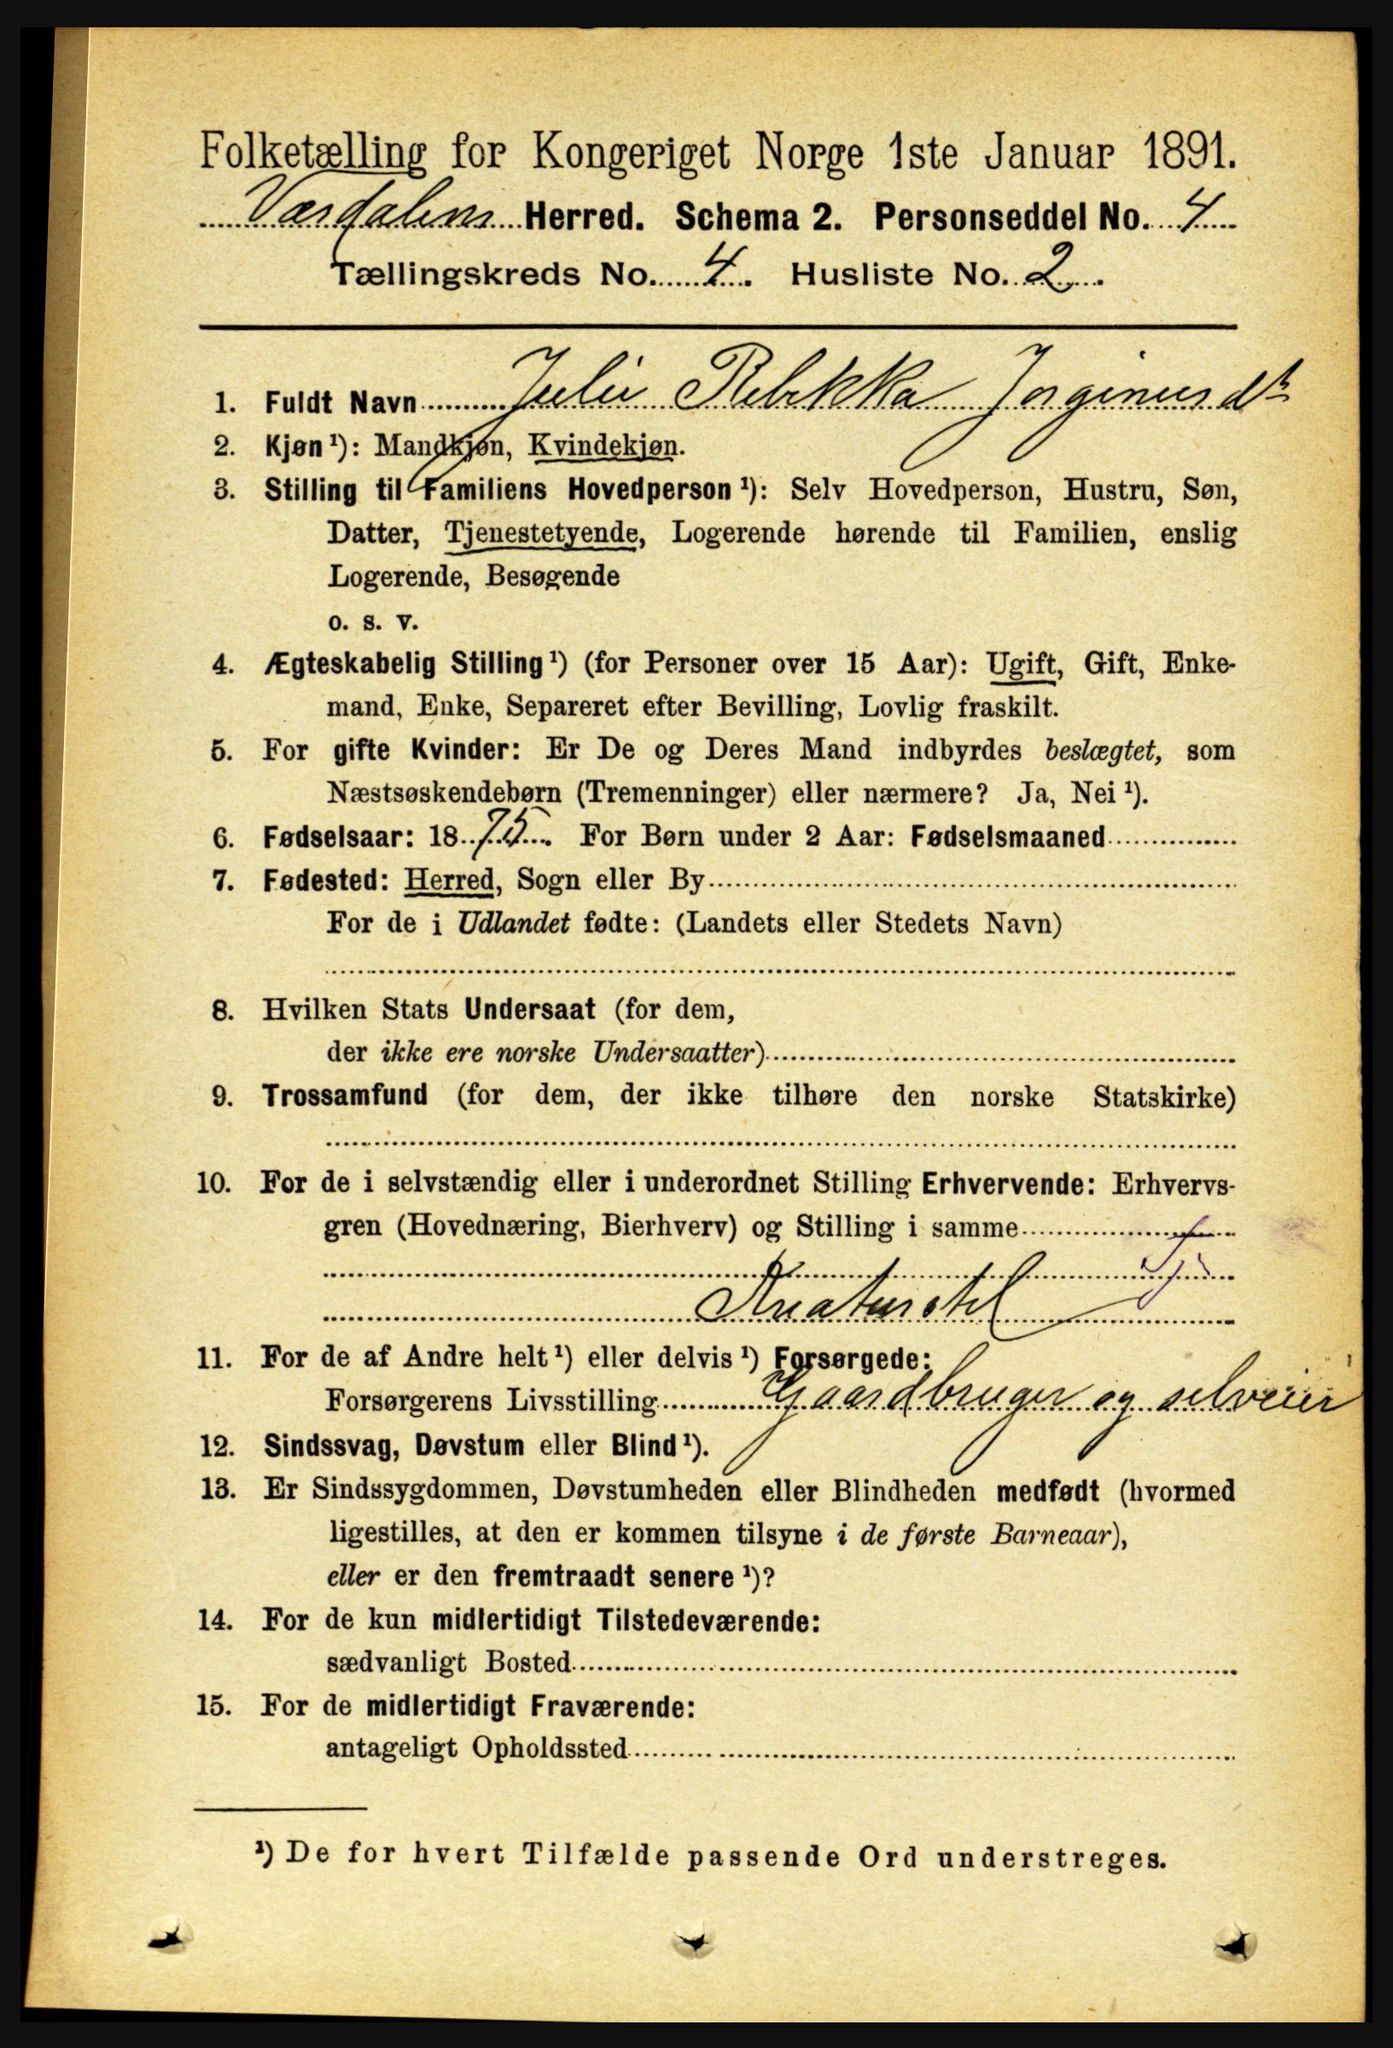 Folketælling for Kongeriget Norge 1ste Januar 1891.
Værdalens Herred. Schema 2. Personseddel No. 4
Tællingskreds No. 4. Husliste No. 2.
1. Fuldt Navn Julie Rebekka Jorginusdtr
2. Kjøn ¹): Mandkjøn, Kvindekjøn.
3. Stilling til Familiens Hovedperson ¹): Selv Hovedperson, Hustru, Søn,
Datter, Tjenestetyende, Logerende hørende til Familien, enslig
Logerende, Besøgende
o. s. v.
4. Ægteskabelig Stilling ¹) (for Personer over 15 Aar): Ugift, Gift, Enke-
mand, Enke, Separeret efter Bevilling, Lovlig fraskilt.
5. For gifte Kvinder: Er De og Deres Mand indbyrdes beslægtet, som
Næstsøskendebørn (Tremenninger) eller nærmere? Ja, Nei ¹).
6. Fødselsaar: 1875. For Børn under 2 Aar: Fødselsmaaned
7. Fødested: Herred, Sogn eller By
For de i Udlandet fødte: (Landets eller Stedets Navn)
8. Hvilken Stats Undersaat (for dem,
der ikke ere norske Undersaatter)
9. Trossamfund (for dem, der ikke tilhøre den norske Statskirke)
10. For de i selvstændig eller i underordnet Stilling Erhvervende: Erhvervs-
gren (Hovednæring, Bierhverv) og Stilling i samme
Tj
11. For de af Andre helt ¹) eller delvis ¹) Forsørgede:
Forsørgerens Livsstilling Gaardbruger og selveier
12. Sindssvag, Døvstum eller Blind ¹).
13. Er Sindssygdommen, Døvstumheden eller Blindheden medfødt (hvormed
ligestilles, at den er kommen tilsyne i de første Barneaar),
eller er den fremtraadt senere ¹)?
14. For de kun midlertidigt Tilstedeværende:
sædvanligt Bosted
15. For de midlertidigt Fraværende:
antageligt Opholdssted
¹) De for hvert Tilfælde passende Ord understreges.